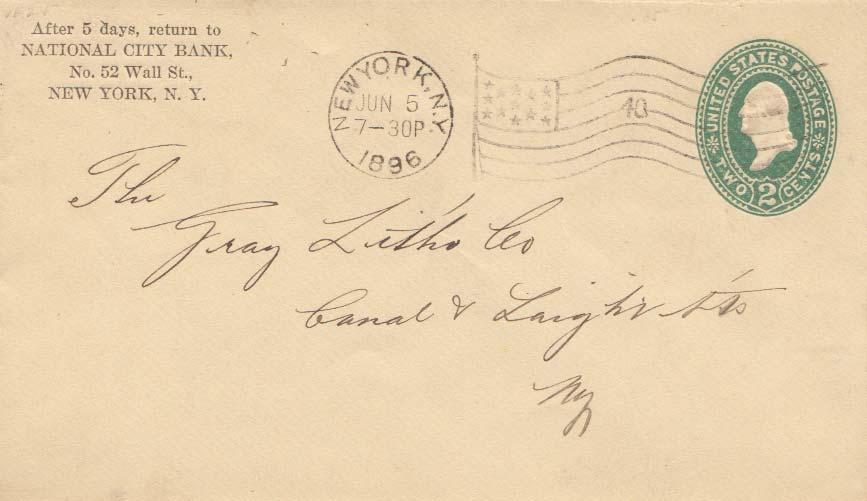 After 5 days, return to
NATIONAL CITY BANK,
No. 52 Wall St.,
NEW YORK, N. Y.
NEW YORK, N.Y.
JUN 5
7-30P
1896
UNITED STATES POSTAGE
TWO 2 CENTS
The
Gray Litho Co
Canal & Laight Sts
NY